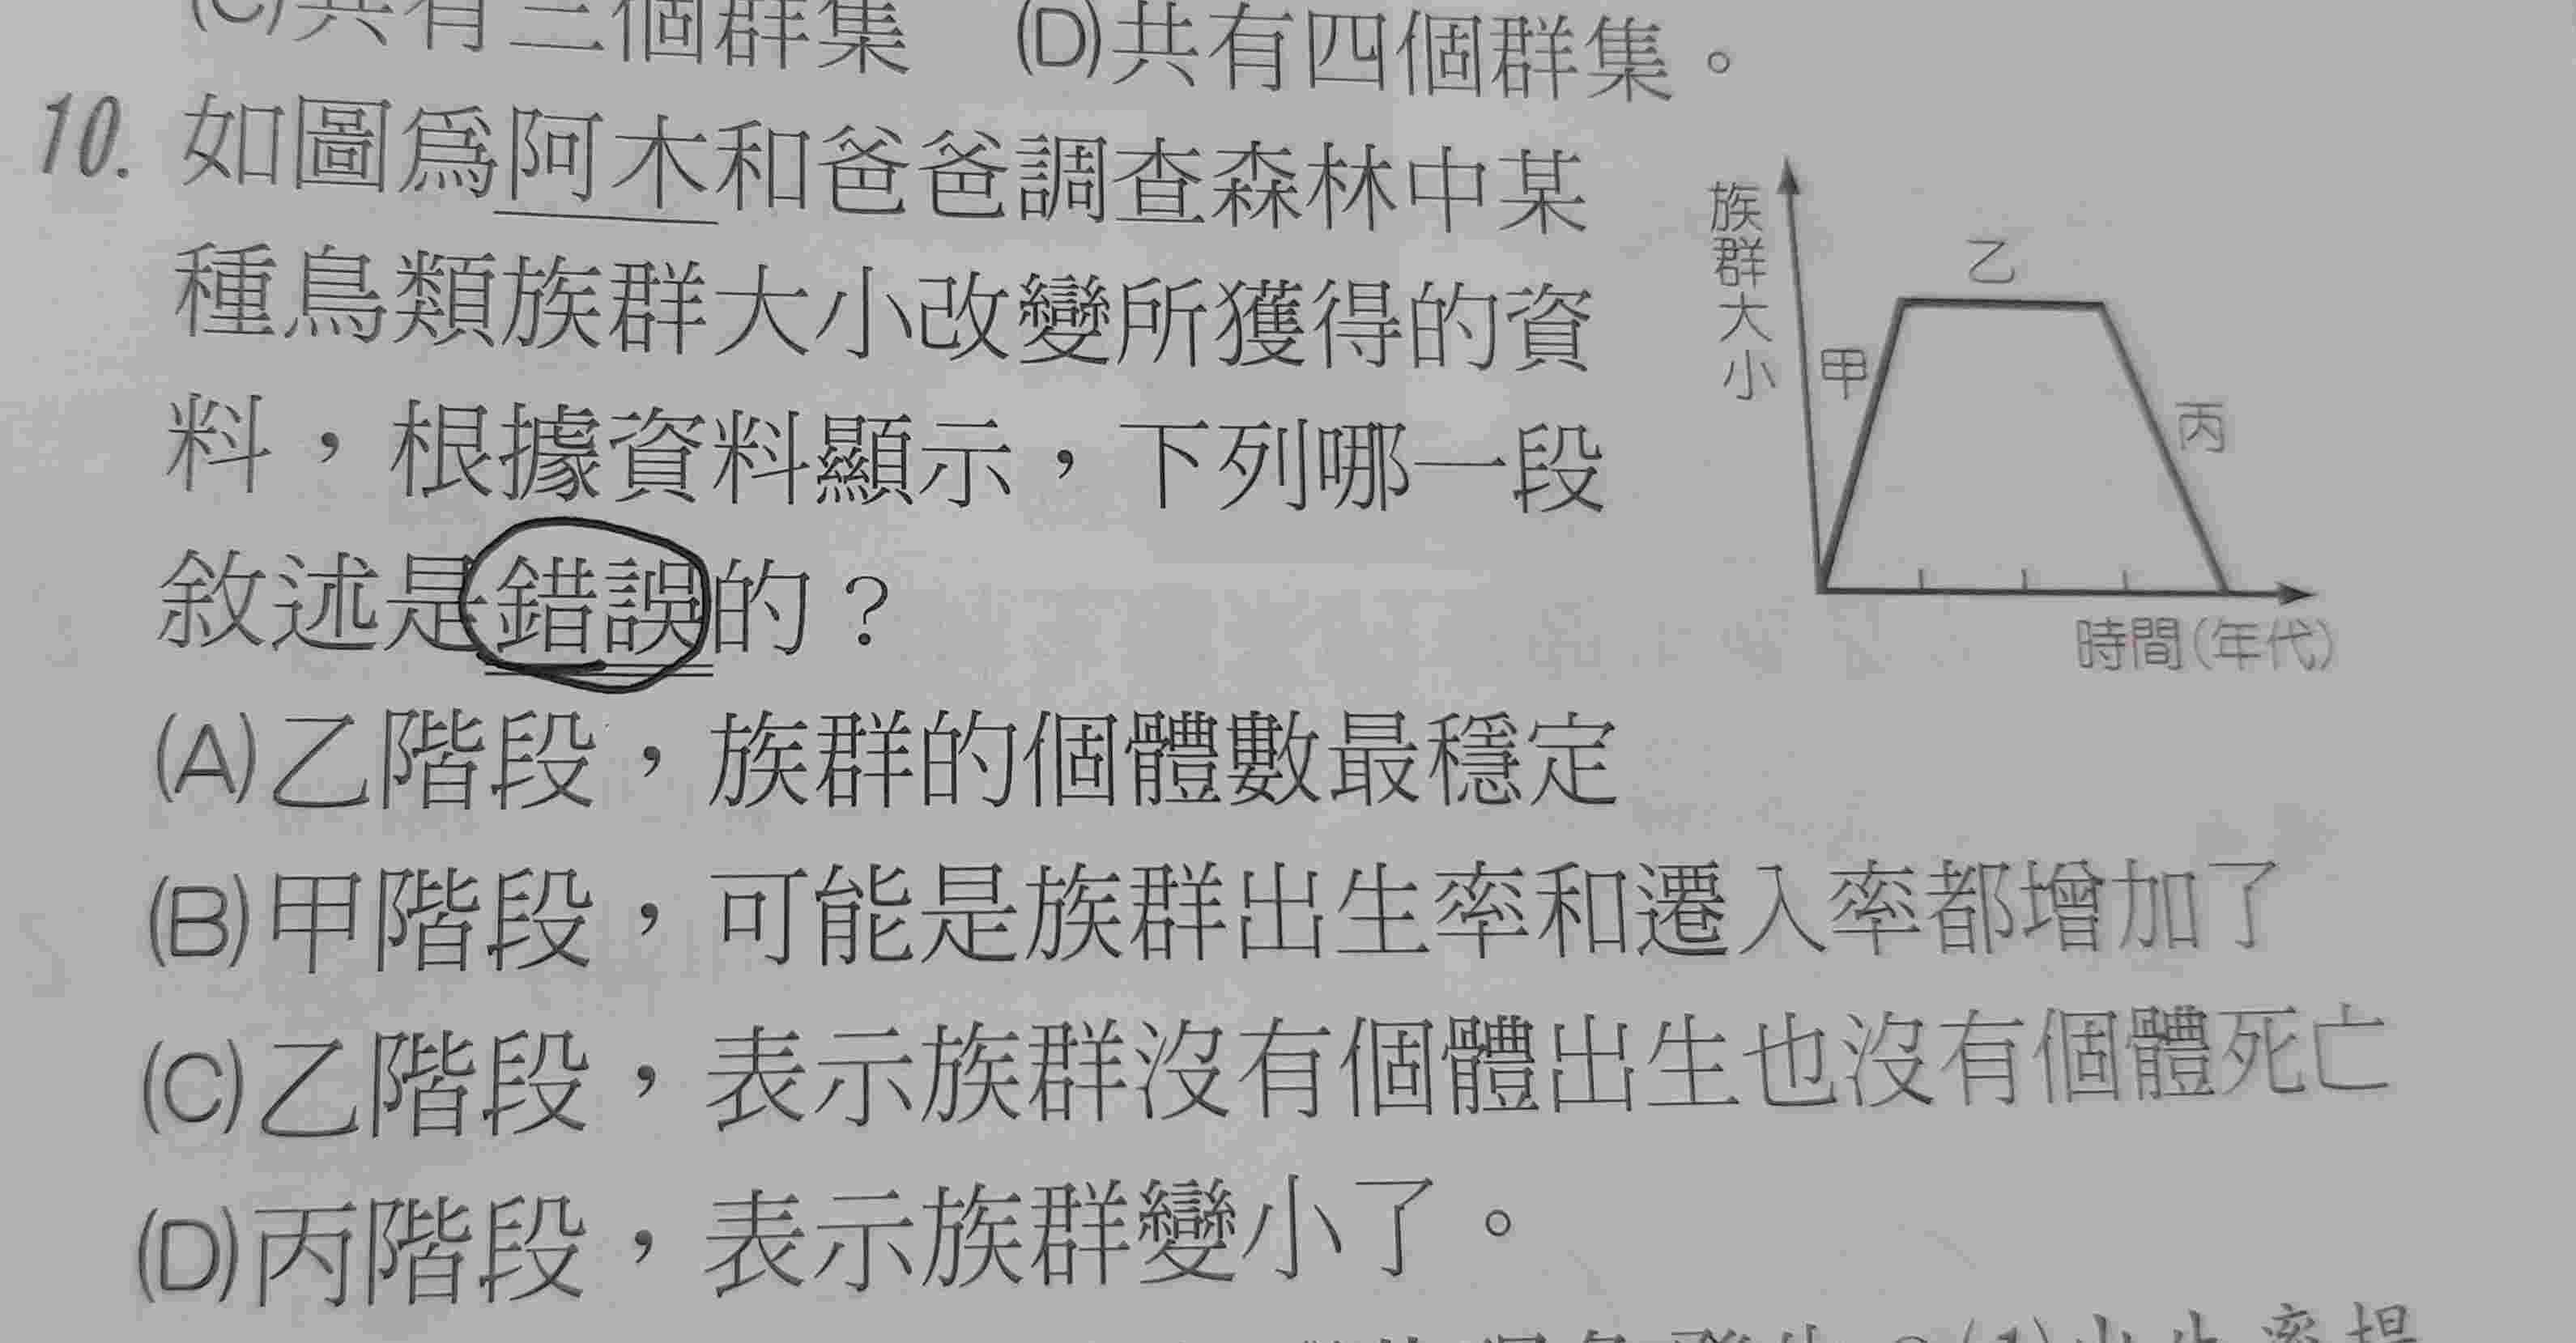 (C)共有三個群集　(D)共有四個群集。
10. 如圖為阿木和爸爸調查森林中某
種鳥類族群大小改變所獲得的資
料，根據資料顯示，下列哪一段
敘述是錯誤的？
族群大小
甲
乙
丙
時間(年代)
(A)乙階段，族群的個體數最穩定
(B)甲階段，可能是族群出生率和遷入率都增加了
(C)乙階段，表示族群沒有個體出生也沒有個體死亡
(D)丙階段，表示族群變小了。